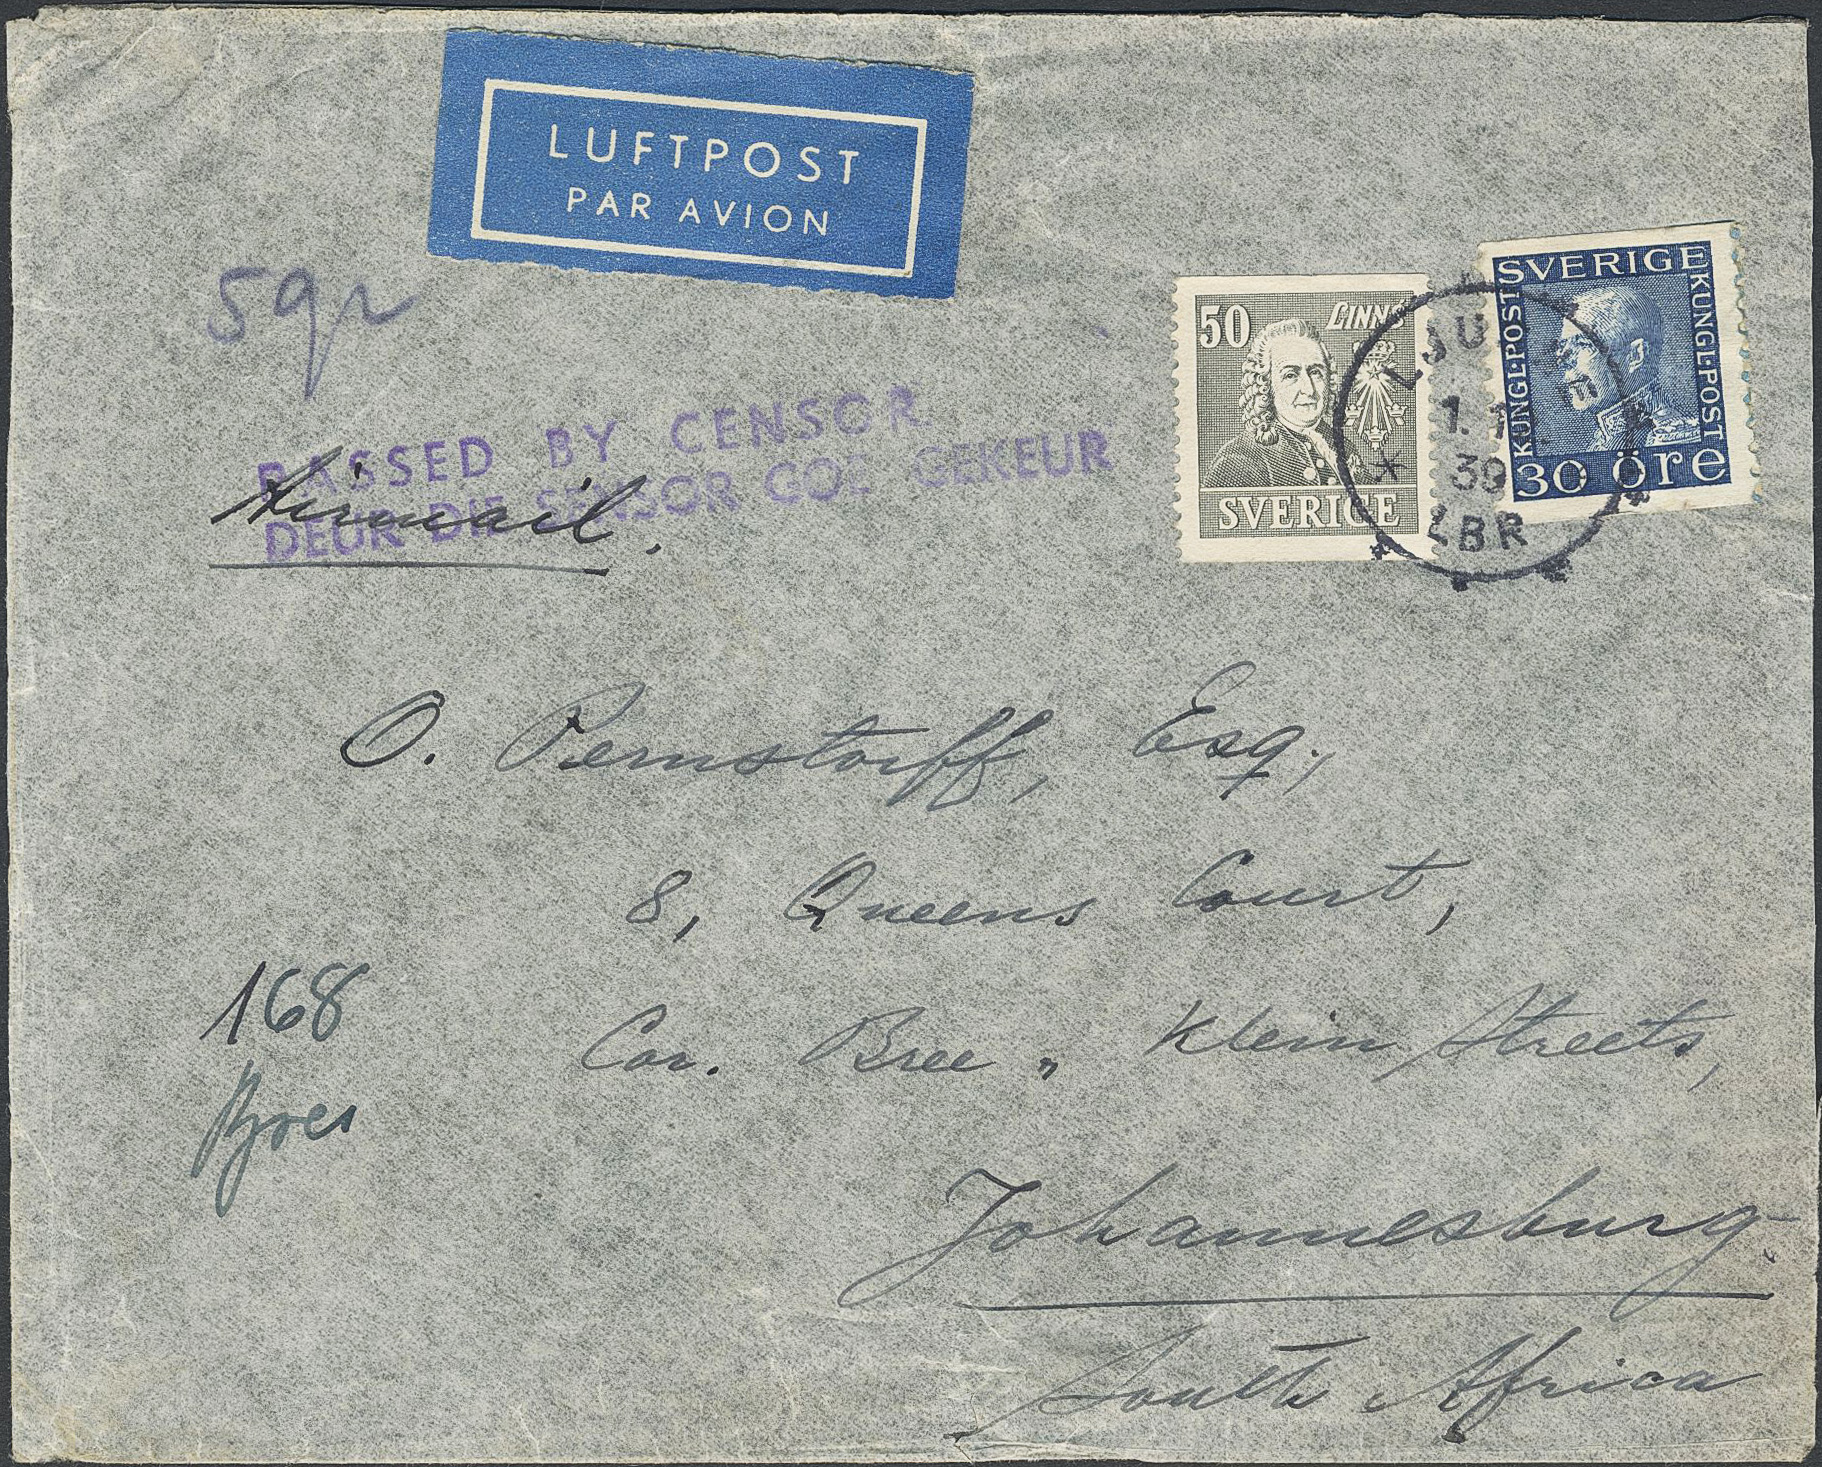 LUFTPOST
PAR AVION
5gr
PASSED BY CENSOR.
DEUR DIE SENSOR GOE GEKEUR
Airmail.
50 LINNÉ
SVERIGE
SVERIGE
KUNGL·POST
KUNGL·POST
30 öre
39
LBR
O. Pernstorff, Esq.,
8, Queens Court,
Cor. Bree " Klein Streets,
168
Johannesburg.
South Africa